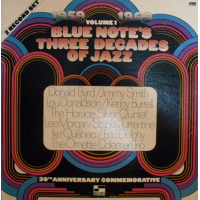 1959 1969
VOLUME 1
BLUE NOTE'S
THREE DECADES
OF JAZZ
2 RECORD SET
Donald Byrd/Jimmy Smith
Lou Donaldson/Kenny Burrell
The Horace Silver Quintet
Lee Morgan/Stanley Turrentine
Ike Quebec/Eric Dolphy
The Ornette Coleman Trio
30TH ANNIVERSARY COMMEMORATIVE